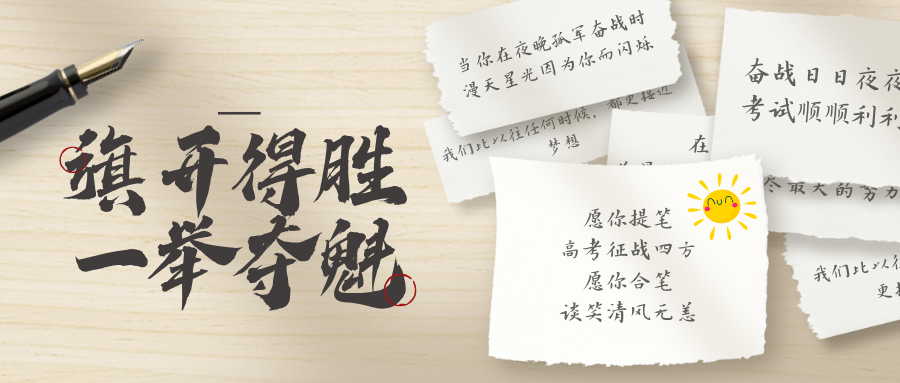 旗开得胜
一举夺魁
当你在夜晚孤军奋战时
漫天星光因为你而闪烁
我们比以往任何时候，都更接近
梦想
奋战日日夜夜
考试顺顺利利
在
尽最大的努力
愿你提笔
高考征战四方
愿你合笔
谈笑清风无恙
我们比以往
更接